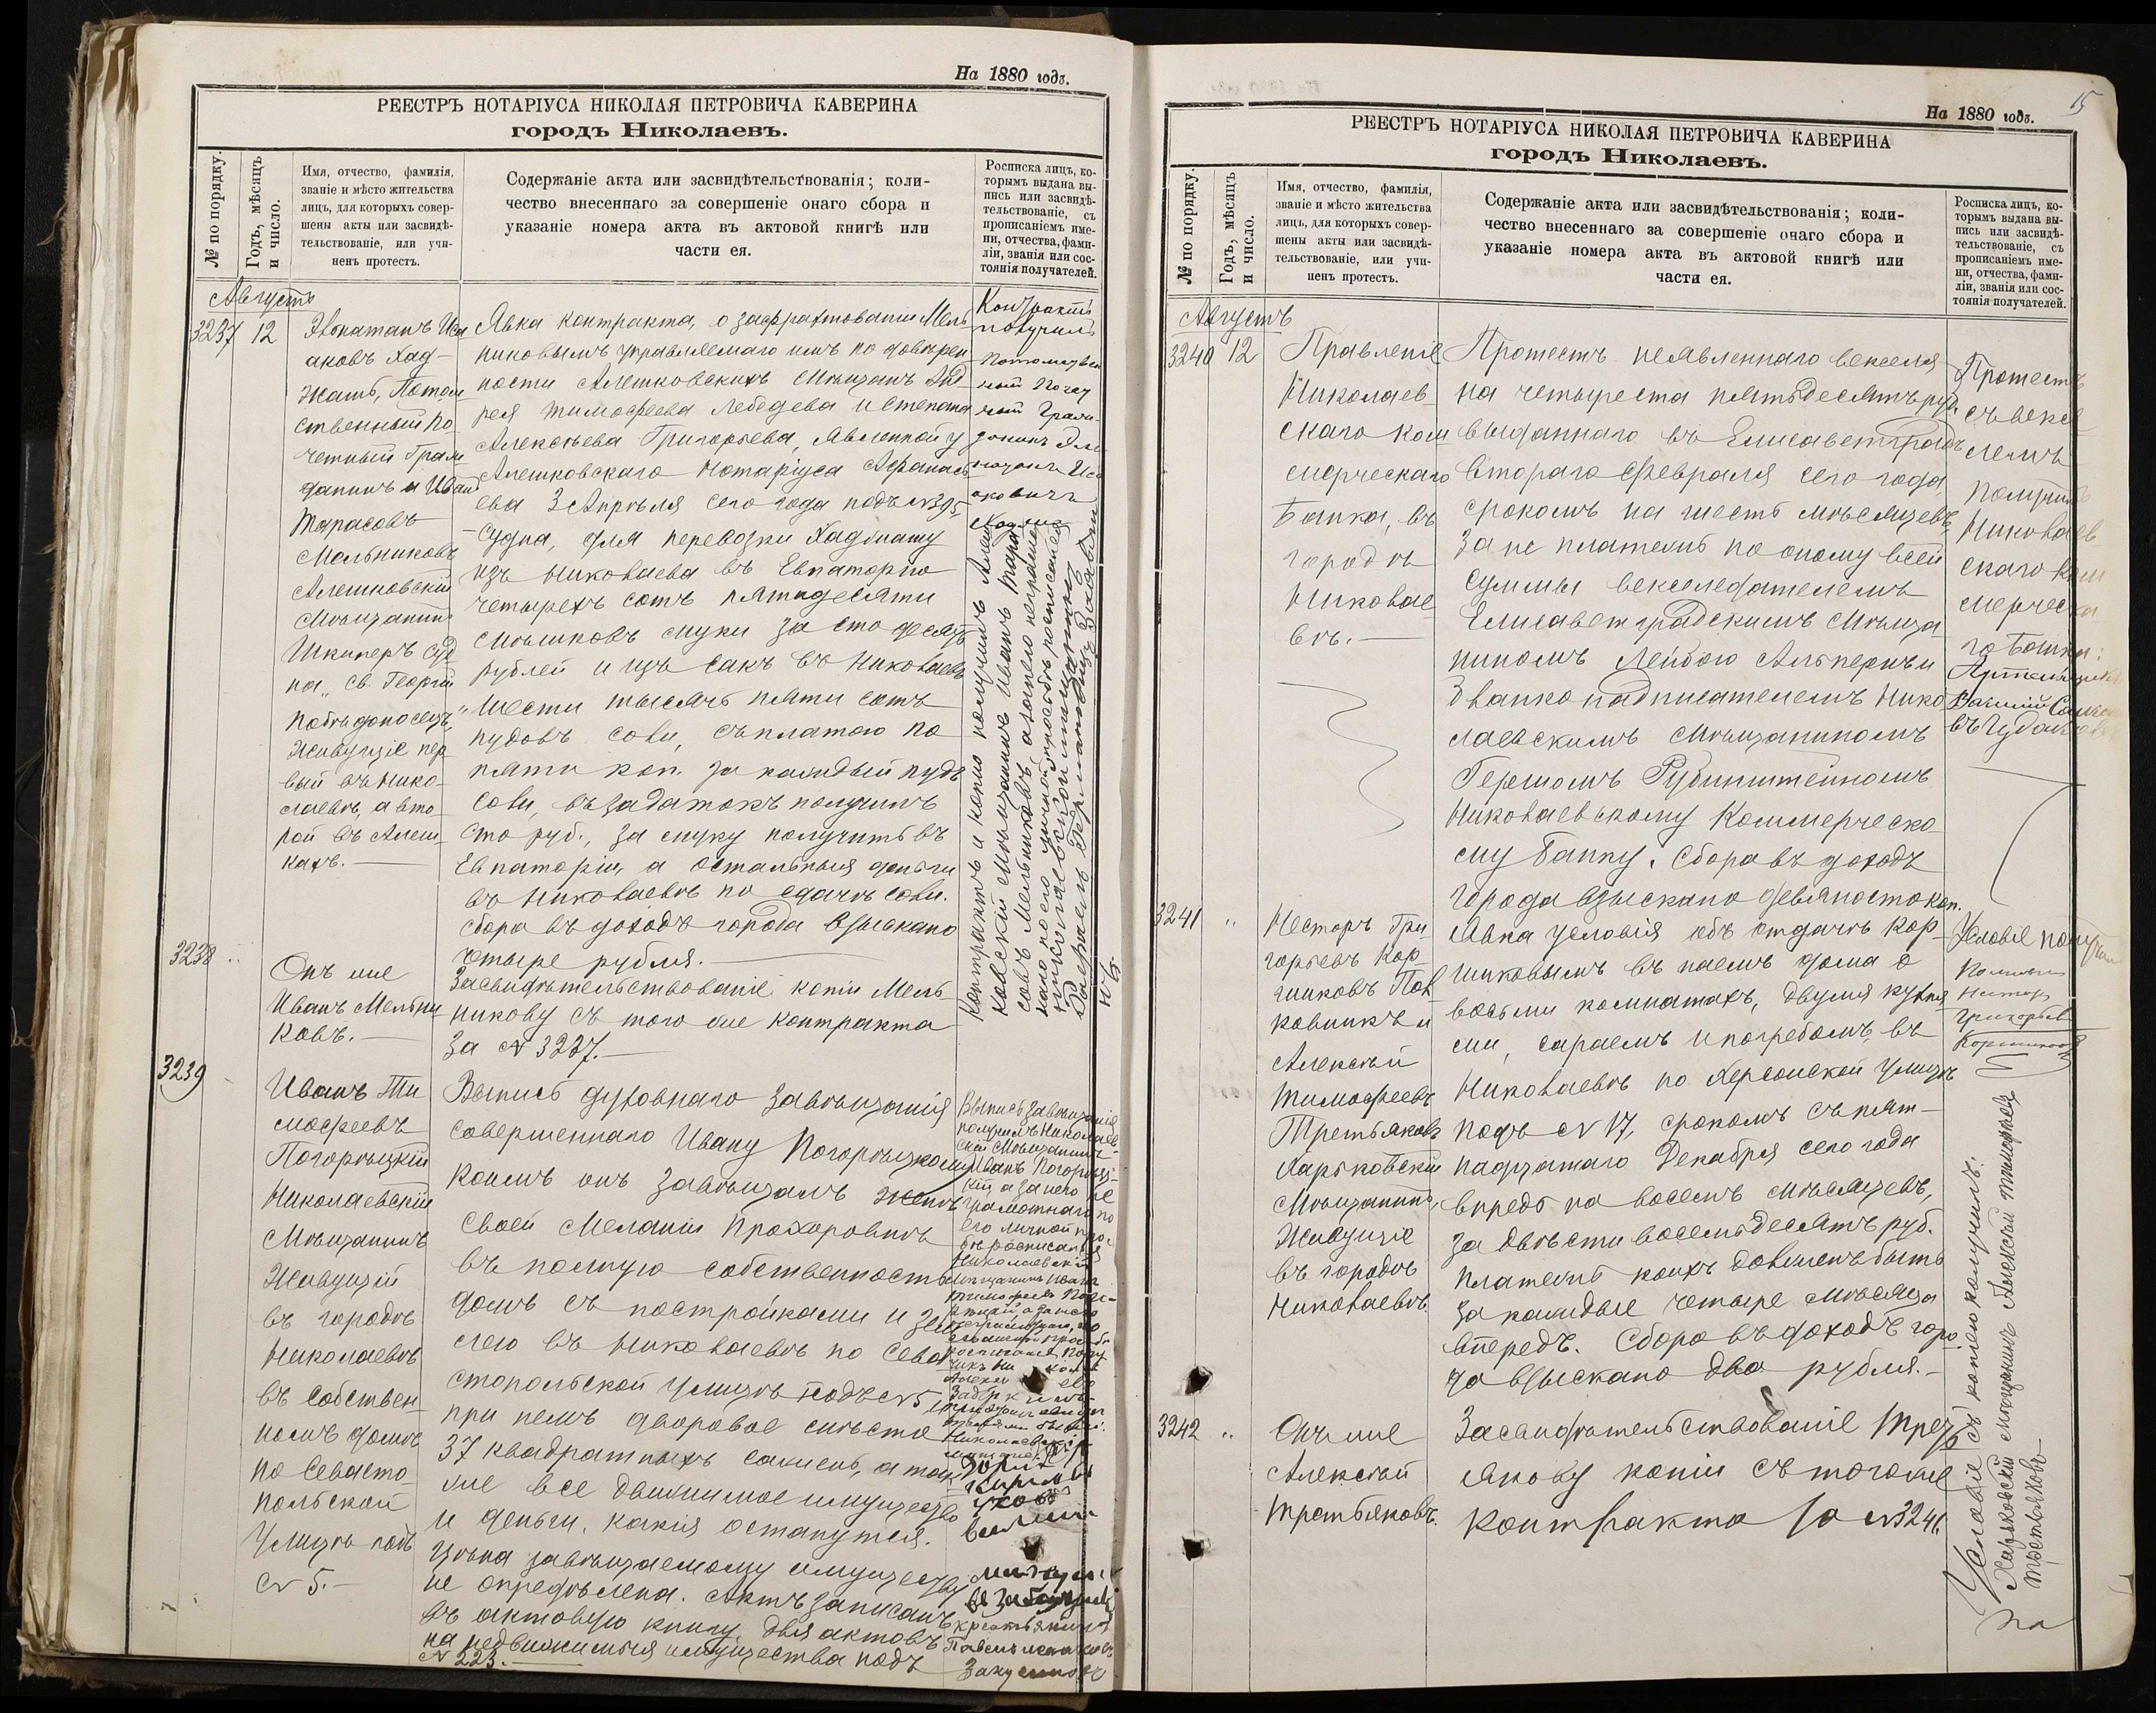 На 1880 годъ.
РЕЕСТРЪ НОТАРІУСА НИКОЛАЯ ПЕТРОВИЧА КАВЕРИНА
городъ Николаевъ.
№ по порядку.
Годъ, мѣсяцъ
и число.
Имя, отчество, фамилія,
званіе и мѣсто жительства
лицъ, для которыхъ совер-
шены акты или засвидѣ-
тельствованіе, или учи-
ненъ протестъ.
Содержаніе акта или засвидѣтельствованія; коли-
чество внесеннаго за совершеніе онаго сбора и
указаніе номера акта въ актовой книгѣ или
части ея.
Росписка лицъ, ко-
торымъ выдана вы-
пись или засвидѣ-
тельствованіе, съ
прописаніемъ име-
ни, отчества, фами-
ліи, званія или сос-
тоянія получателей.
Августъ
3237 12
Иса
аковъ Хад-
жашъ, Потом
ственный По
четный Граж
данинъ и Иван
Тарасовъ
Мельниковъ
Алешковскій
Мѣщанинъ
Шкиперъ суд
на „Св. Георгій
Побѣдоносецъ"
Живущіе пер
вый въ Нико-
лаевѣ, а вто
рой въ Алеш
кахъ.
Явка контракта, о зафрахтованіи Мель
никовымъ управляемаго имъ по довѣрен
ности Алешковскихъ Мѣщанъ Анд
рея Тимофеева Лебедева и Степана
Алексѣева Григорьева, явленной у
Алешковскаго Нотаріуса Афанась
ева 3 Апрѣля сего года подъ № 395,
судна, для перевозки Хаджашу
изъ Николаева въ Евпаторію
четырехъ сотъ пятидесяти
мѣшковъ муки за сто десять
рублей и изъ Сакъ въ Николаевъ
шести тысячъ пяти сотъ
пудовъ соли, съ платою по
пяти коп. за каждый пудъ
соли, въ задатокъ получилъ
сто руб., за муку получить въ
Евпаторіи, а остальныя деньги
въ Николаевѣ по сдачѣ соли.
Сбора въ доходъ города взыскано
четыре рубля.
Контрактъ
получилъ
Потомствен
ный Почет
ный Граж
данинъ
Иса
аковичъ
Контрактъ и копію получилъ Алеш
ковскій Мѣщанинъ Иванъ Тара
совъ Мельниковъ, а за него неграмот
наго по его личной просьбѣ росписался
3238 „
Онъ же
Иванъ Мельни
ковъ.
Засвидѣтельствованіе копіи Мель
никову съ того же контракта
за № 3237.
3239
Иванъ Ти
мофеевъ
Погорѣцкій
Николаевскій
Мѣщанинъ
Живущій
въ городѣ
Николаевѣ
въ собствен
номъ домѣ
по Севасто
польской
Улицѣ подъ
№ 5.
Выпись духовнаго завѣщанія
совершеннаго Ивану Погорѣцкому
коимъ онъ завѣщалъ женѣ
своей Меланіи Прохоровнѣ
въ полную собственность
домъ съ постройками и зем
лею въ Николаевѣ по Сева
стопольской улицѣ подъ № 5,
при немъ дворовое мѣсто
37 квадратныхъ сажень, а так
же все движимое имущество
и деньги, какія останутся.
Цѣна завѣщаемому имуществу
не опредѣлена. Актъ записанъ
въ актовую книгу для актовъ
на недвижимыя имущества подъ
№ 223.
Выпись завѣщанія
получилъ Николаев
скій Мѣщанинъ
Иванъ Погорѣц-
кій а за него не
грамотнаго по
его личной прос
бѣ росписался
Николаевскій
На 1880 годъ.
15
РЕЕСТРЪ НОТАРІУСА НИКОЛАЯ ПЕТРОВИЧА КАВЕРИНА
городъ Николаевъ.
№ по порядку.
Годъ, мѣсяцъ
и число.
Имя, отчество, фамилія,
званіе и мѣсто жительства
лицъ, для которыхъ совер-
шены акты или засвидѣ-
тельствованіе, или учи-
ненъ протестъ.
Содержаніе акта или засвидѣтельствованія; коли-
чество внесеннаго за совершеніе онаго сбора и
указаніе номера акта въ актовой книгѣ или
части ея.
Росписка лицъ, ко-
торымъ выдана вы-
пись или засвидѣ-
тельствованіе, съ
прописаніемъ име-
ни, отчества, фами-
ліи, званія или сос-
тоянія получателей.
Августъ
3240 12
Правленіе
Николаев
скаго Ком
мерческаго
Банка, въ
городѣ
Николае
вѣ.
Протестъ неявленнаго векселя
на четыреста пятьдесятъ руб.
выданнаго въ Елисаветградѣ
втораго Февраля сего года
срокомъ на шесть мѣсяцевъ,
за не платежъ по оному всей
суммы векселедателемъ
Елисаветградскимъ Мѣща
ниномъ Лейбою Альперинъ и
бланко надписателемъ Нико
лаевскимъ Мѣщаниномъ
Гершомъ Рубинштейномъ
Николаевскому Коммерческо
му Банку. Сбора въ доходъ
города взыскано девяносто коп.
Протестъ
съ вексе
лемъ
получилъ
Николаев
скаго Ком
мерческа
го Банка:
Артельщикъ
3241 „
Несторъ Гри
горьевъ Кор
шиковъ Пол
ковникъ и
Алексѣй
Тимофеевъ
Третьяковъ
Харьковскій
Мѣщанинъ,
Живущіе
въ городѣ
Николаевѣ.
Явка условія объ отдачѣ Кор-
шиковымъ въ наемъ дома о
восьми комнатахъ, двумя кухня
ми, сараемъ и погребомъ, въ
Николаевѣ по Херсонской улицѣ
подъ № 17, срокомъ съ пят-
надцатаго Декабря сего года
впредь на восемь мѣсяцевъ,
за двѣсти восемьдесятъ руб.
платежъ коихъ долженъ быть
за каждые четыре мѣсяца
впередъ. Сбора въ доходъ горо
да взыскано два рубля.
Условіе получилъ
Полковн
Несторъ
Григорьев
Коршиковъ
3242 „
Онъ же
Алексѣй
Третьяковъ.
Засвидѣтельствованіе Треть
якову копіи съ того же
контракта за № 3241.
Условіе съ копіею получилъ:
Харьковскій Мѣщанинъ Алексѣй Тимофеев
Третьяковъ